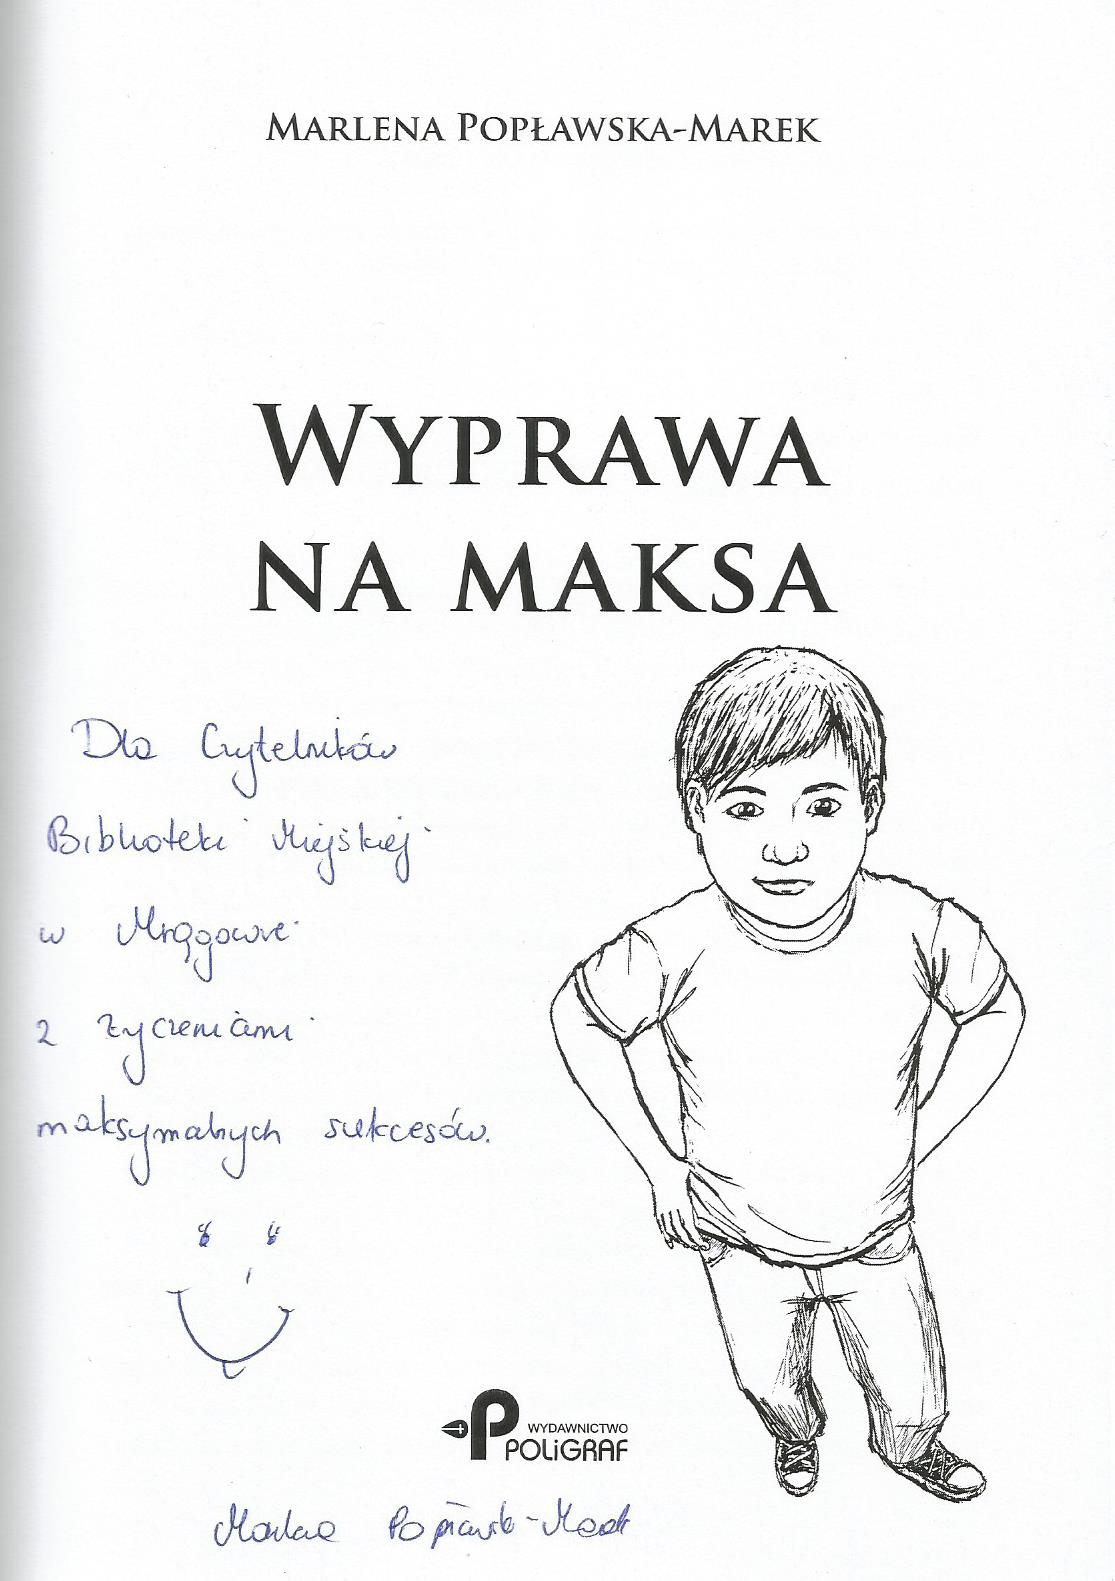 MARLENA POPŁAWSKA-MAREK
WYPRAWA
NA MAKSA
Dla Czytelników
Biblioteki Miejskiej
w Mrągowie
z życzeniami
maksymalnych sukcesów.
WYDAWNICTWO
POLiGRAF
Marlena Popławska-Marek